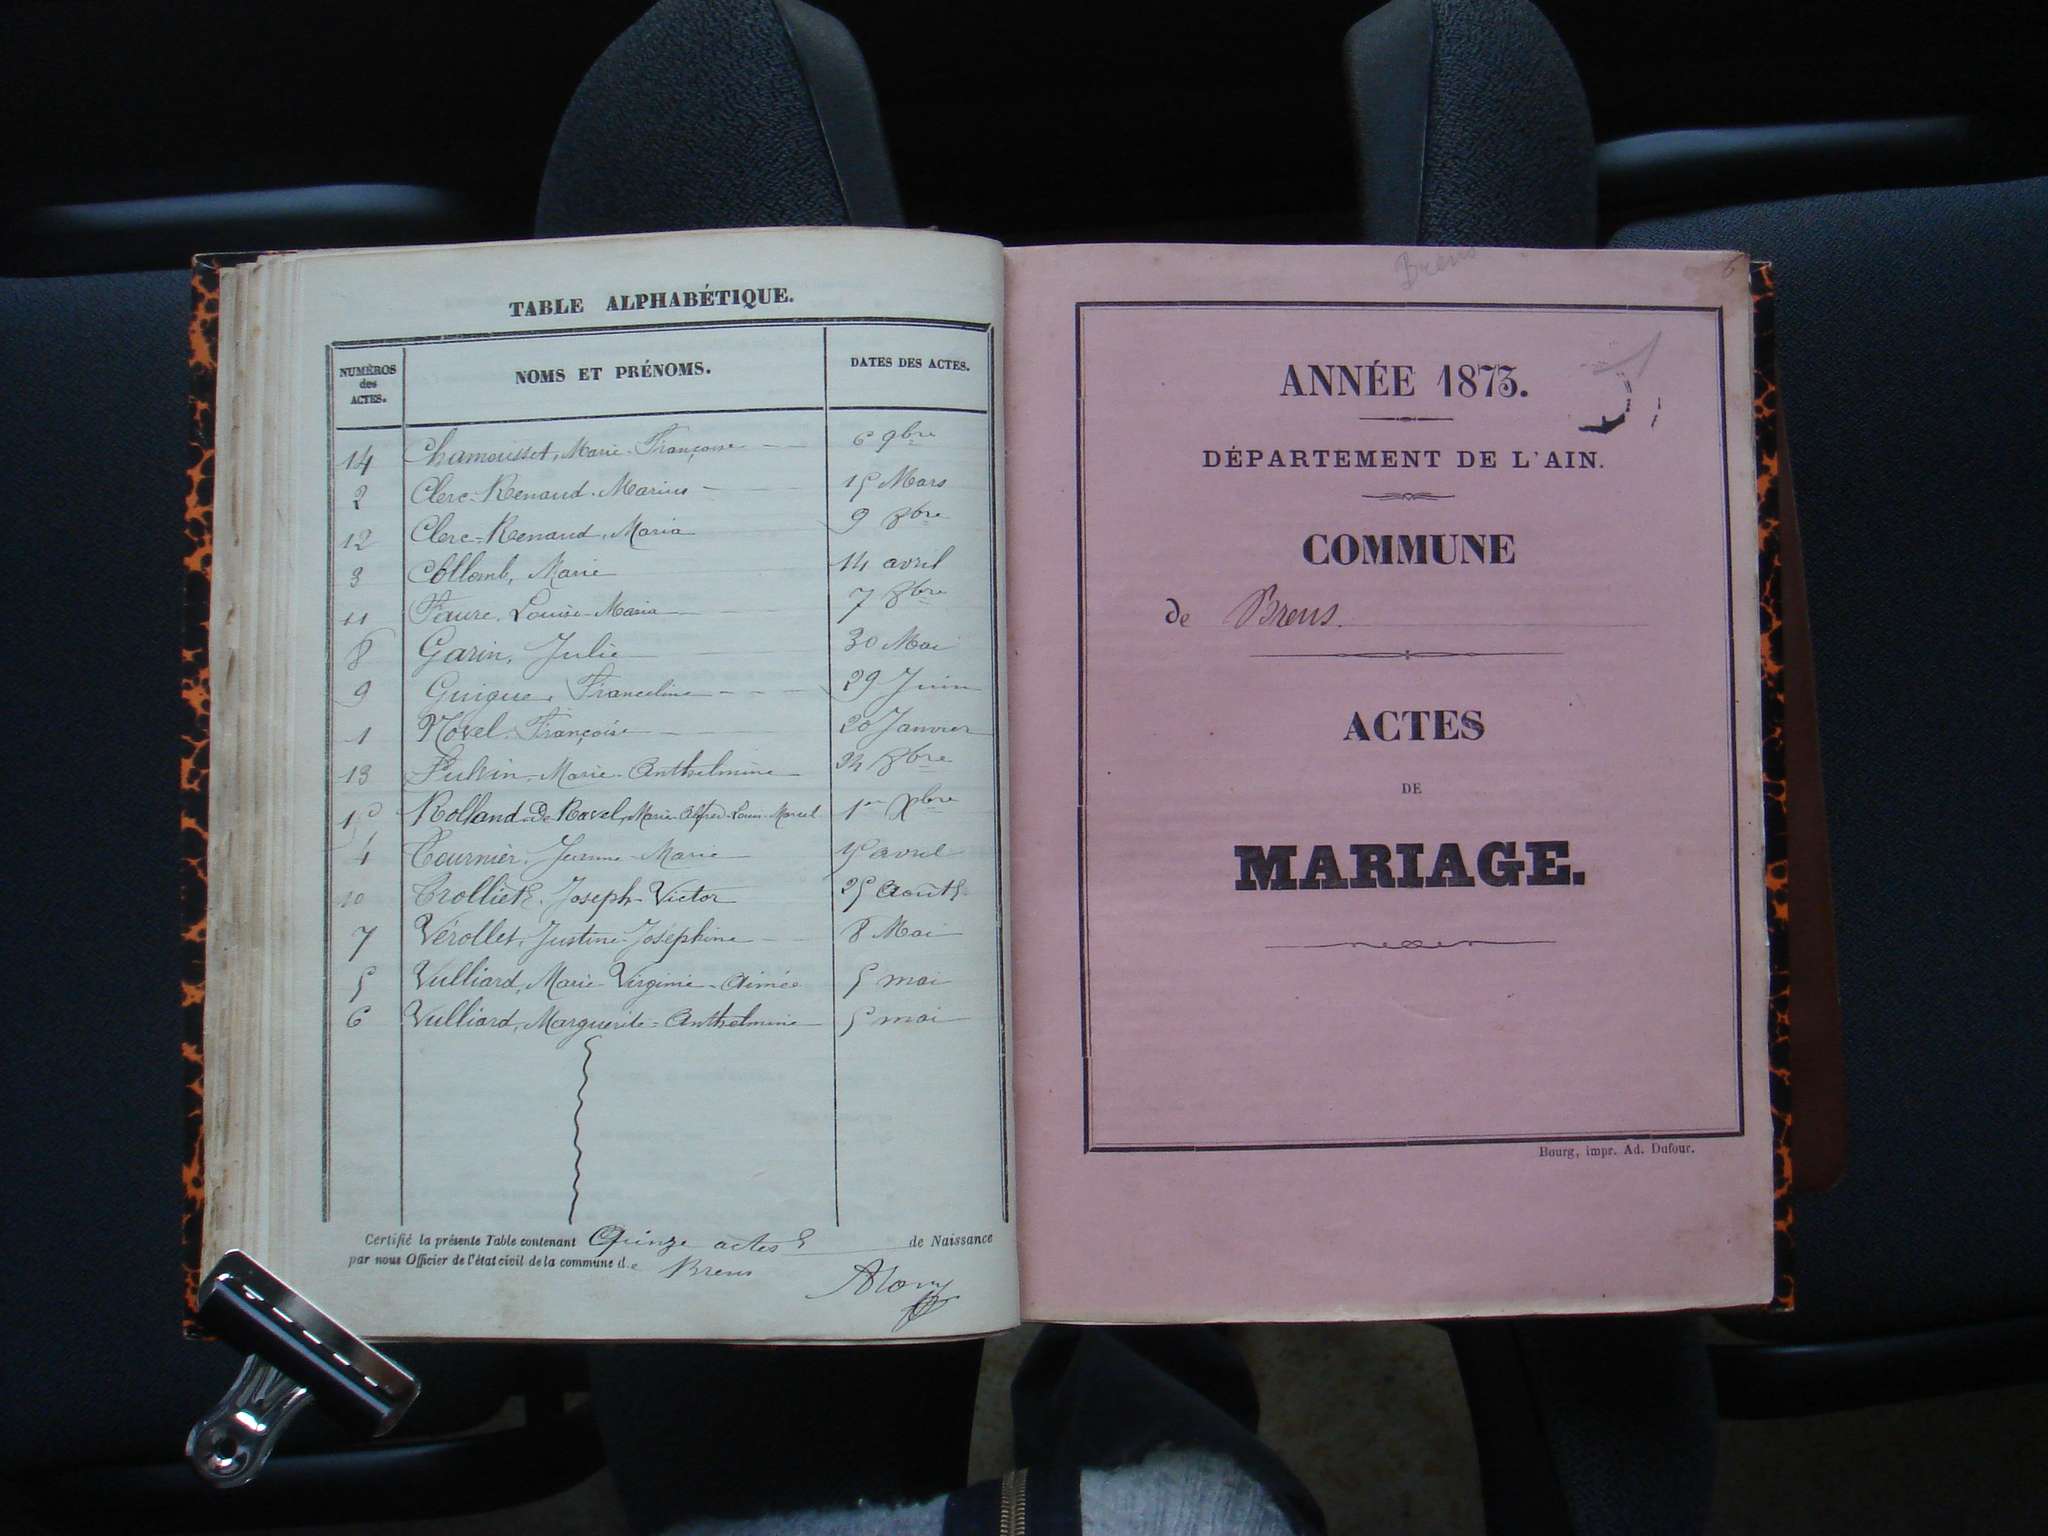 TABLE ALPHABÉTIQUE.
NUMÉROS des ACTES. NOMS ET PRÉNOMS. DATES DES ACTES.
14 Chamousset, Marie-Françoise 6 9bre
2 Clerc-Renaud, Marius 15 Mars
12 Clerc-Renaud, Maria 9 8bre
3 Collomb, Marie 14 avril
11 Faure, Louise-Maria 7 8bre
8 Garin, Julie 30 Mai
9 Guigue, Franceline 29 Juin
1 Novel, Françoise 20 Janvier
13 Marie-Anthelmine 24 8bre
Rolland-de Ravel, Marie-Alfred-Louis-Marcel 1er Xbre
4 Tournier, Jeanne-Marie 15 avril
10 Trolliet, Joseph-Victor 25 Août
7 Vérollet, Justine-Joséphine 8 Mai
5 Vulliard, Marie-Virginie-Aimée 5 mai
6 Vulliard, Marguerite-Anthelmine 5 mai
Certifié la présente Table contenant Quinze actes de Naissance
par nous Officier de l'état civil de la commune de Brens
Brens
6
ANNÉE 1873.
DÉPARTEMENT DE L'AIN.
COMMUNE
de Brens.
ACTES
DE
MARIAGE.
Bourg, impr. Ad. Dufour.